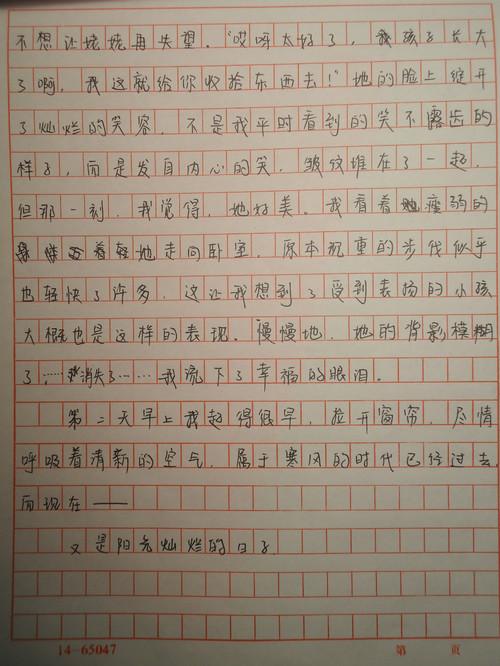 不想让姥姥再失望。“哎呀太好了，我孩子长大
了啊，我这就给你收拾东西去！”她的脸上绽开
了灿烂的笑容，不是我平时看到的笑不露齿的
样子，而是发自内心的笑，皱纹堆在了一起，
但那一刻，我觉得，她好美。我看着她瘦弱的
着轻地走向卧室，原本沉重的步伐似乎
也轻快了许多，这让我想到了受到表扬的小孩
大概也是这样的表现。慢慢地，她的背影模糊
了……消失了……我流下了幸福的眼泪。
第二天早上我起得很早，拉开窗帘，尽情
呼吸着清新的空气，属于寒风的时代已经过去，
而现在——
又是阳光灿烂的日子
14-65047 第 页